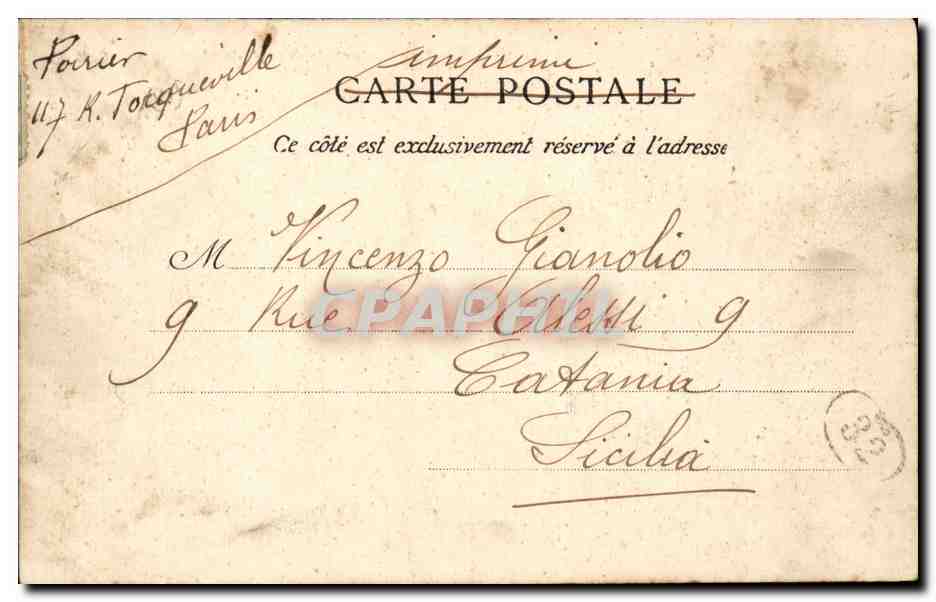 Poirier
117 R. Tocqueville
Paris
imprimé
CARTE POSTALE
Ce côté est exclusivement réservé à l'adresse
M Vincenzo Gianolio
9 Rue Alessi 9
Catania
Sicilia
CPAPHIL